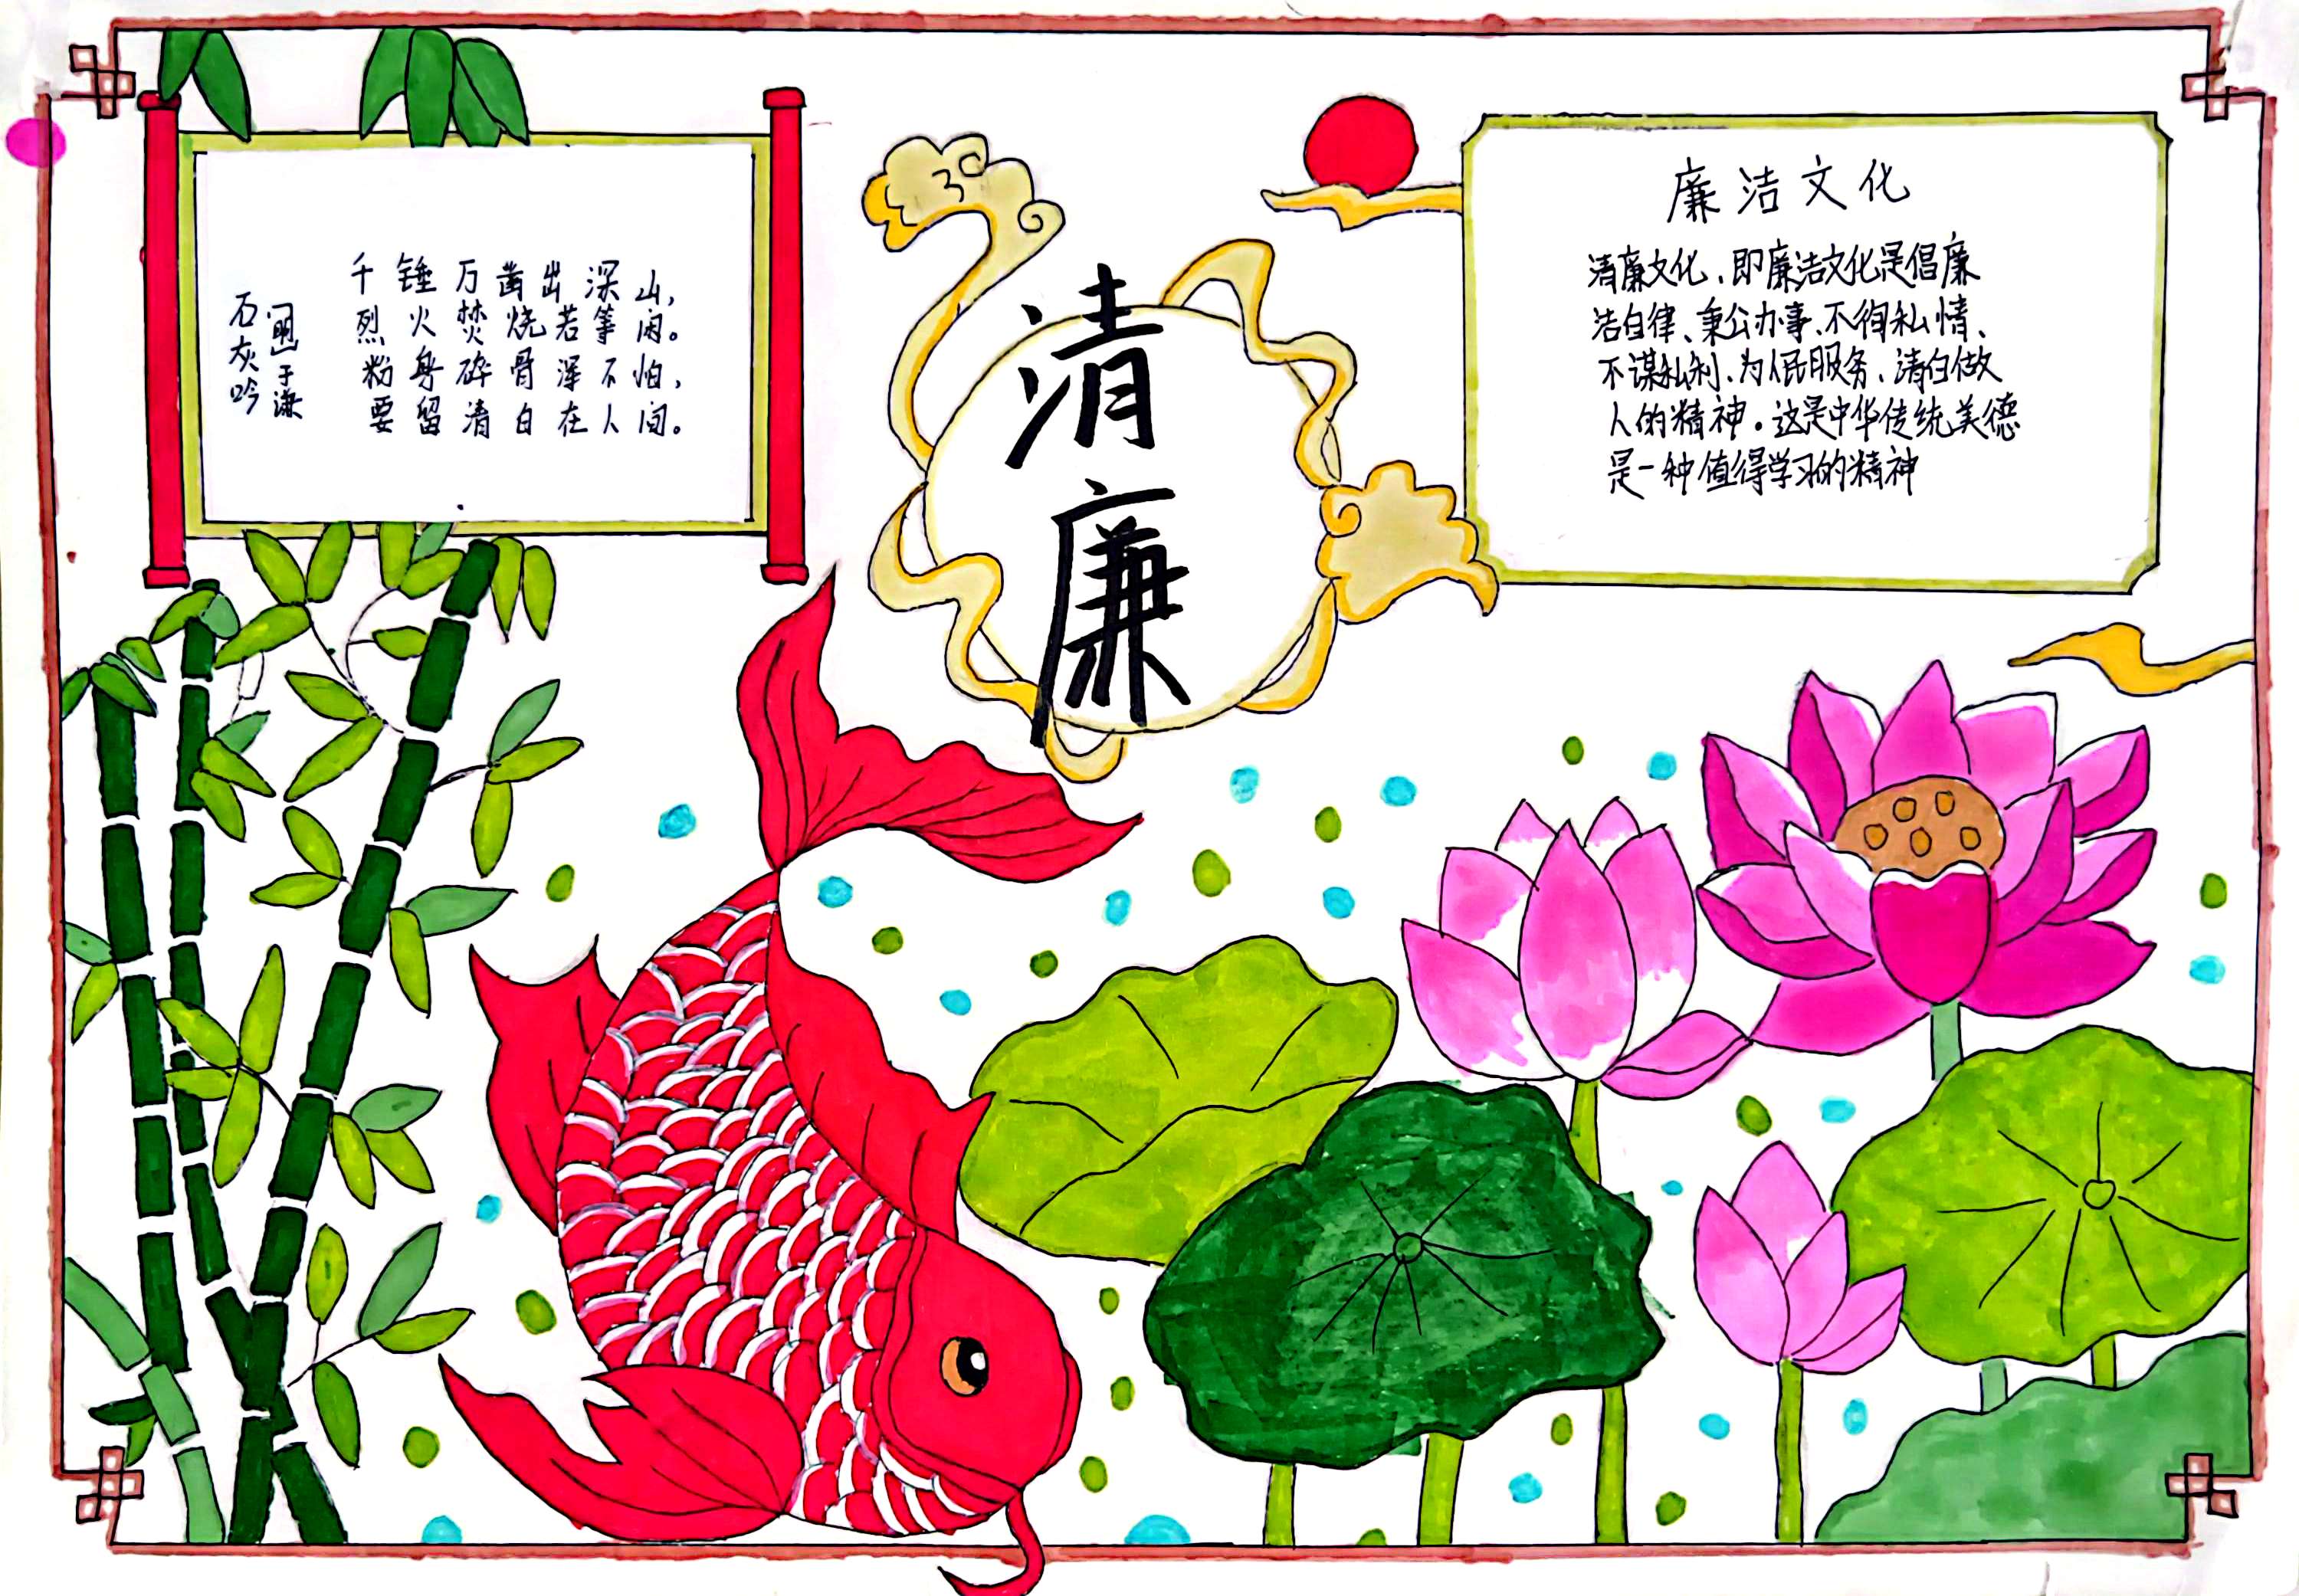 石灰吟
[明]于谦
千锤万凿出深山，
烈火焚烧若等闲。
粉身碎骨浑不怕，
要留清白在人间。
清廉
廉洁文化
清廉文化、即廉洁文化是倡廉
洁自律、秉公办事、不徇私情、
不谋私利、为人民服务、清白做
人的精神。这是中华传统美德
是一种值得学习的精神